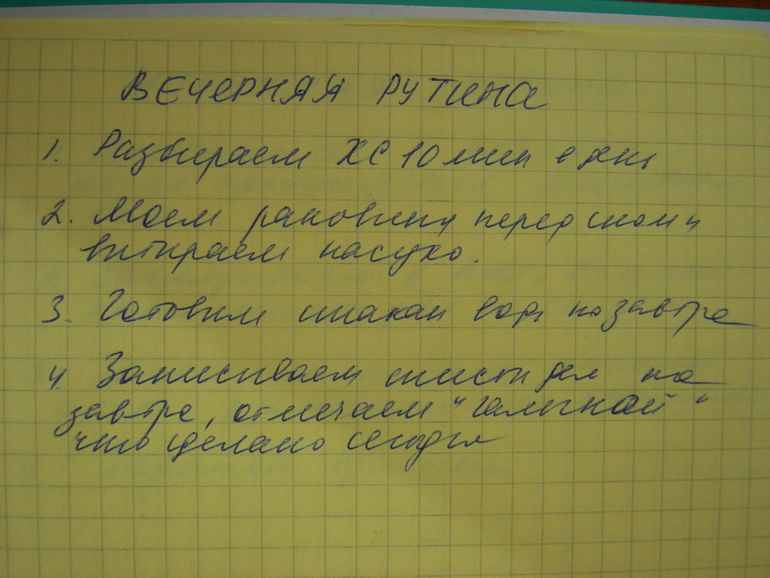 ВЕЧЕРНЯЯ РУТИНА
1. Разбираем ХС 10 мин в день
2. Моем раковину перед сном и
вытираем насухо.
3. Готовим стакан воды на завтра
4. Записываем список дел на
завтра, отмечаем "галочкой"
что сделано сегодня